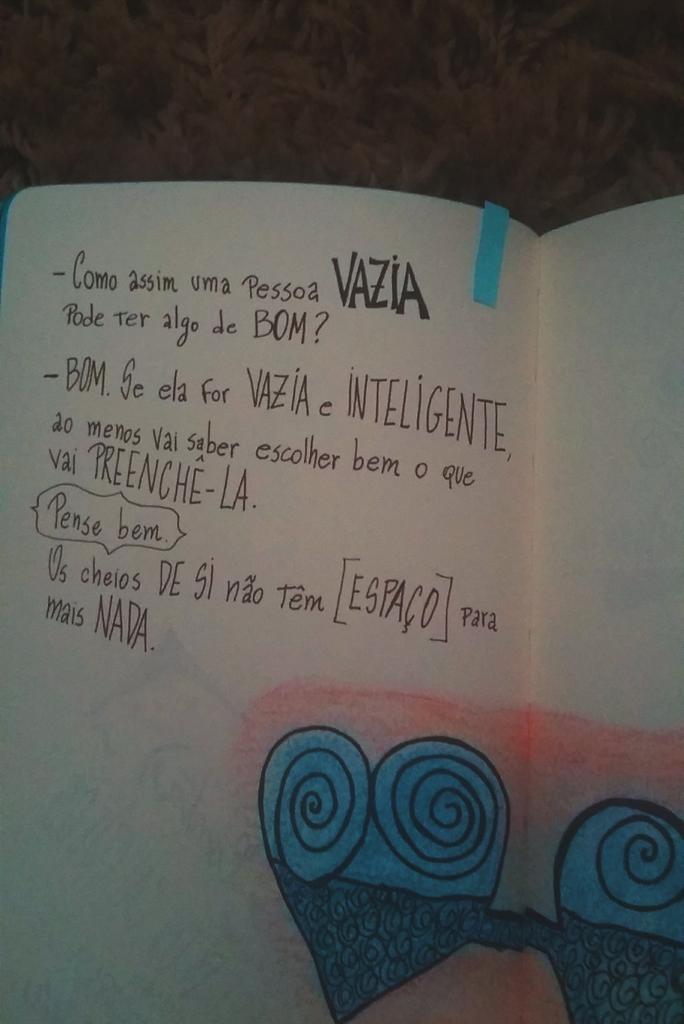 - Como assim uma Pessoa VAZIA
Pode Ter algo de BOM?
- BOM. Se ela for VAZIA e INTELIGENTE,
ao menos vai saber escolher bem o que
vai PREENCHÊ-LA.
Pense bem.
Os cheios DE SI não Têm [ESPAÇO] Para
mais NADA.